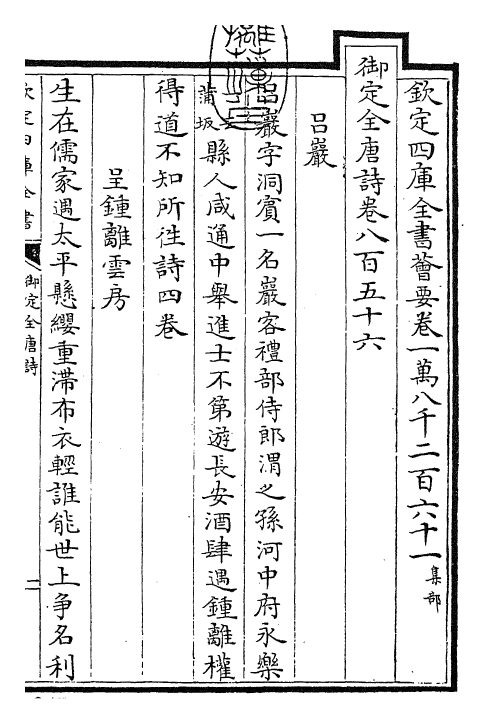 欽定四庫全書薈要卷一萬八千二百六十一集部
御定全唐詩卷八百五十六
呂巖
呂巖字洞賓一名巖客禮部侍郎渭之孫河中府永樂
蒲坂縣人咸通中舉進士不第遊長安酒肆遇鍾離權
得道不知所往詩四卷
呈鍾離雲房
生在儒家遇太平懸纓重滯布衣輕誰能世上爭名利
欽定四庫全書
御定全唐詩